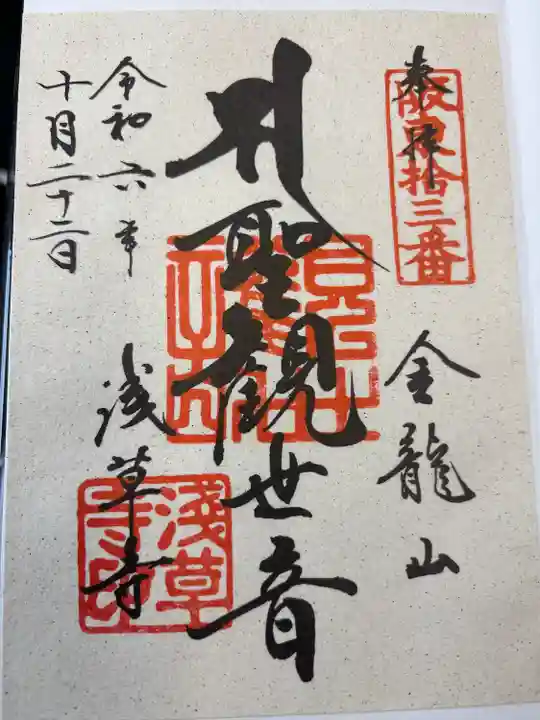 奉拝
阪東拾三番
金龍山
聖観世音
浅草寺
淺草寺印
令和六年
十月二十二日